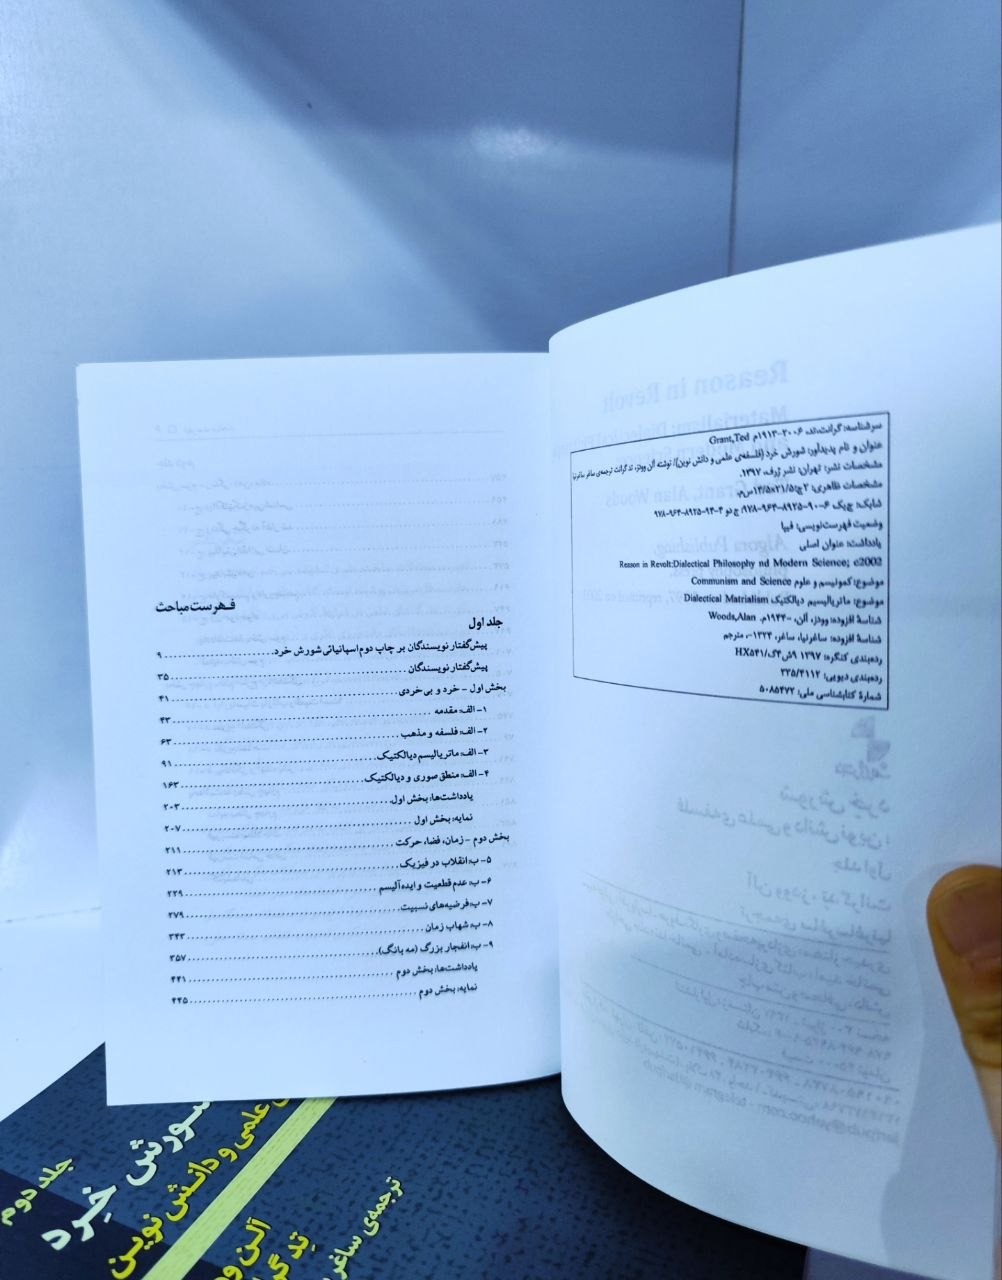 سرشناسه: گرانت،تد، ۲۰۰۶-۱۹۱۳م Grant,Ted
عنوان و نام پدیدآور: شورش خرد (فلسفه‌ی علمی و دانش نوین)/ نوشته آلن وودز، تد گرانت ترجمه‌ی ساغر ساغرنیا
مشخصات نشر: تهران: نشر ژرف، ۱۳۹۷.
مشخصات ظاهری: ۲ج؛۲۱/۵×۱۴/۵س‌م.
شابک: ج‌یک ۶-۹۰-۸۹۲۵-۹۶۴-۹۷۸؛ ج‌دو ۴-۹۳-۸۹۲۵-۹۶۴-۹۷۸
وضعیت فهرست‌نویسی: فیپا
یادداشت: عنوان اصلی
Reason in Revolt:Dialectical Philosophy nd Modern Science; c2002
موضوع: کمونیسم و علوم Communism and Science
موضوع: ماتریالیسم دیالکتیک Dialectical Matrialism
شناسهٔ افزوده: وودز، آلن، -۱۹۴۴م. Woods,Alan
شناسهٔ افزوده: ساغرنیا، ساغر، ۱۳۲۴-، مترجم
رده‌بندی کنگره: ۱۳۹۷ ۹ش۴گ/HX۵۴۱
رده‌بندی دیویی: ۳۳۵/۴۱۱۲
شمارهٔ کتابشناسی ملی: ۵۰۸۵۴۷۲
فهرست مباحث
جلد اول
پیش‌گفتار نویسندگان بر چاپ دوم اسپانیائی شورش خرد ۹
پیش‌گفتار نویسندگان ۳۵
بخش اول - خرد و بی خردی ۴۱
۱- الف: مقدمه ۴۳
۲- الف: فلسفه و مذهب ۶۳
۳- الف: ماتریالیسم دیالکتیک ۹۱
۴- الف: منطق صوری و دیالکتیک ۱۶۳
یادداشت‌ها: بخش اول ۲۰۳
نمایه: بخش اول ۲۰۷
بخش دوم - زمان، فضا، حرکت ۲۱۱
۵- ب: انقلاب در فیزیک ۲۱۳
۶- ب: عدم قطعیت و ایده‌آلیسم ۲۲۹
۷- ب: فرضیه‌های نسبیت ۲۷۹
۸- ب: شهاب زمان ۳۴۳
۹- ب: انفجار بزرگ (مه بانگ) ۳۵۷
یادداشت‌ها: بخش دوم ۴۴۱
نمایه: بخش دوم ۴۴۵
جلد دوم
شورش خِرد
علمی و دانش نوین
آلن
تِد
ترجمه‌ی ساغر